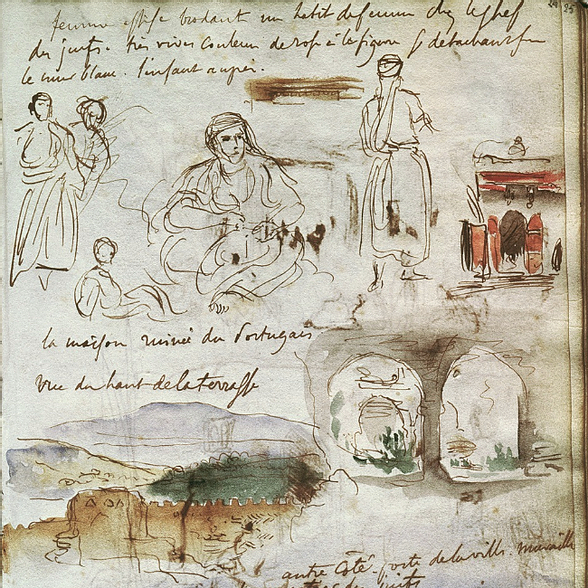 femme assise brodant un habit de femme chez le chef
des juifs. très vives couleur de rose à la figure se detachant sur
le mur blanc. l'enfant auprès.
25
la maison ruinée du Portugais
vue du haut de la terrasse
autre côté porte de la ville. muraille